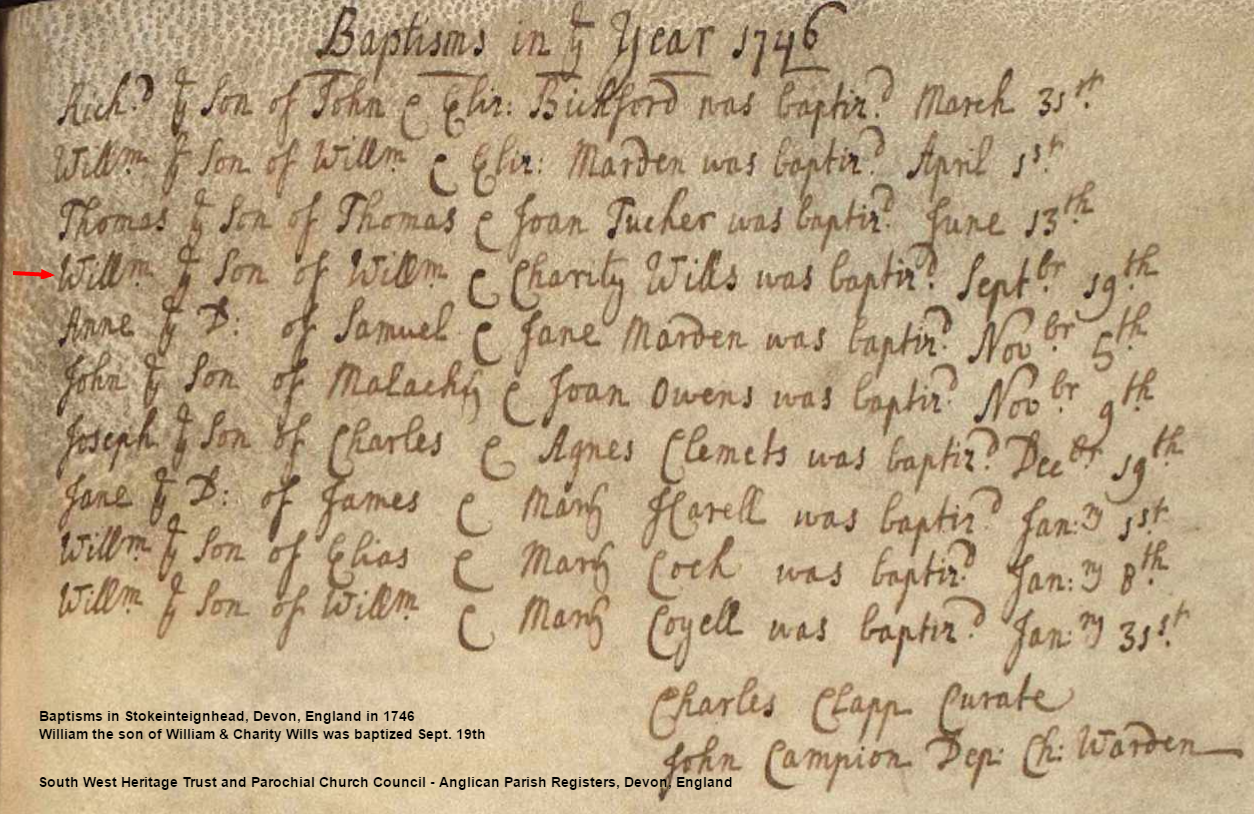 Baptisms in yͤ Year 1746
Rich.ᵈ yͤ Son of John & Eliz: Bickford was baptiz.ᵈ March 31ˢᵗ.
Willm. yͤ Son of Willm. & Eliz: Marden was baptiz.ᵈ April 1ˢᵗ.
Thomas yͤ Son of Thomas & Joan Tucker was baptiz.ᵈ June 13ᵗʰ.
Willm. yͤ Son of Willm. & Charity Wills was baptiz.ᵈ Septᵇʳ. 19ᵗʰ
Anne yͤ D: of Samuel & Jane Marden was baptiz.ᵈ Novᵇʳ 5ᵗʰ
John yͤ Son of Malachy & Joan Owens was baptiz.ᵈ Novᵇʳ. 9ᵗʰ
Joseph yͤ Son of Charles & Agnes Clemets was baptiz.ᵈ Decᵇʳ 19ᵗʰ
Jane yͤ D: of James & Mary Harell was baptiz.ᵈ Jan:ʳʸ 1ˢᵗ.
Willm. yͤ Son of Elias & Mary Cock was baptiz.ᵈ Jan:ʳʸ 8ᵗʰ.
Willm. yͤ Son of Willm. & Mary Coyell was baptiz.ᵈ Jan:ʳʸ 31ˢᵗ.
Charles Clapp Curate
John Campion Dep: Ch: Warden
Baptisms in Stokeinteignhead, Devon, England in 1746
William the son of William & Charity Wills was baptized Sept. 19th
South West Heritage Trust and Parochial Church Council - Anglican Parish Registers, Devon, England